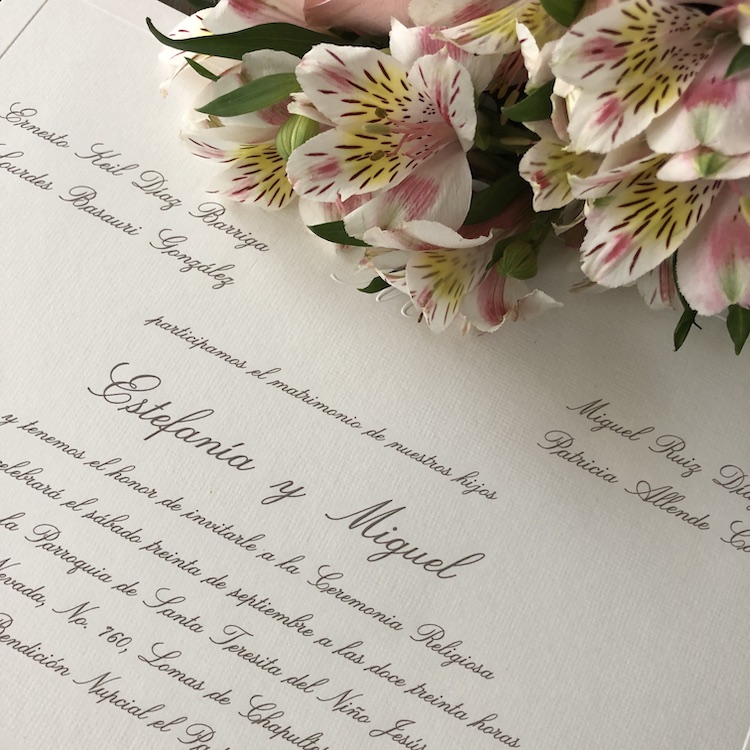 Ernesto Keil Díaz Barriga
Lourdes Basauri González
Miguel Ruiz
Patricia Allende
participamos el matrimonio de nuestros hijos
Estefanía y Miguel
y tenemos el honor de invitarle a la Ceremonia Religiosa
celebrará el sábado treinta de septiembre a las doce treinta horas
la Parroquia de Santa Teresita del Niño Jesús
Nevada, No. 760, Lomas de
Bendición Nupcial el